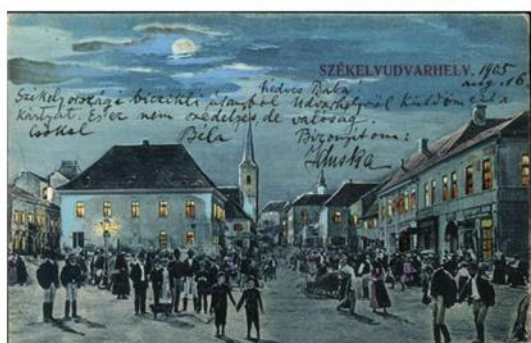 SZÉKELYUDVARHELY. 1905
aug. 16
Kedves Baba!
Székelyországi biczikli utamból Udvarhelyről küldöm ezt a
kártyát. És ez nem szédelgés, de valóság.
Csókol Béla Bizonyitom:
Iluska